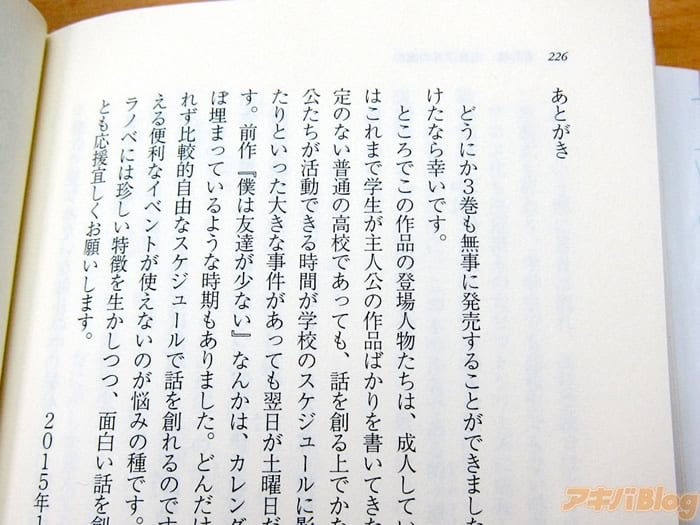 226
あとがき
どうにか3巻も無事に発売することができました
けたなら幸いです。
ところでこの作品の登場人物たちは、成人してい
はこれまで学生が主人公の作品ばかりを書いてきた
定のない普通の高校であっても、話を創る上でかな
公たちが活動できる時間が学校のスケジュールに影
たりといった大きな事件があっても翌日が土曜日だ
す。前作『僕は友達が少ない』なんかは、カレンダ
ぼ埋まっているような時期もありました。どんだけ
れず比較的自由なスケジュールで話を創れるのです
える便利なイベントが使えないのが悩みの種です。
ラノベには珍しい特徴を生かしつつ、面白い話を創
とも応援宜しくお願いします。
2015年1
アキバBlog